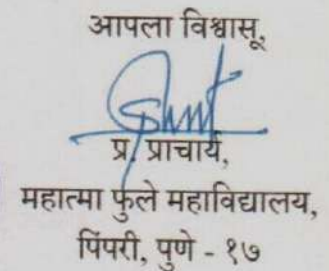 आपला विश्वासू,
प्र. प्राचार्य,
महात्मा फुले महाविद्यालय,
पिंपरी, पुणे - १७